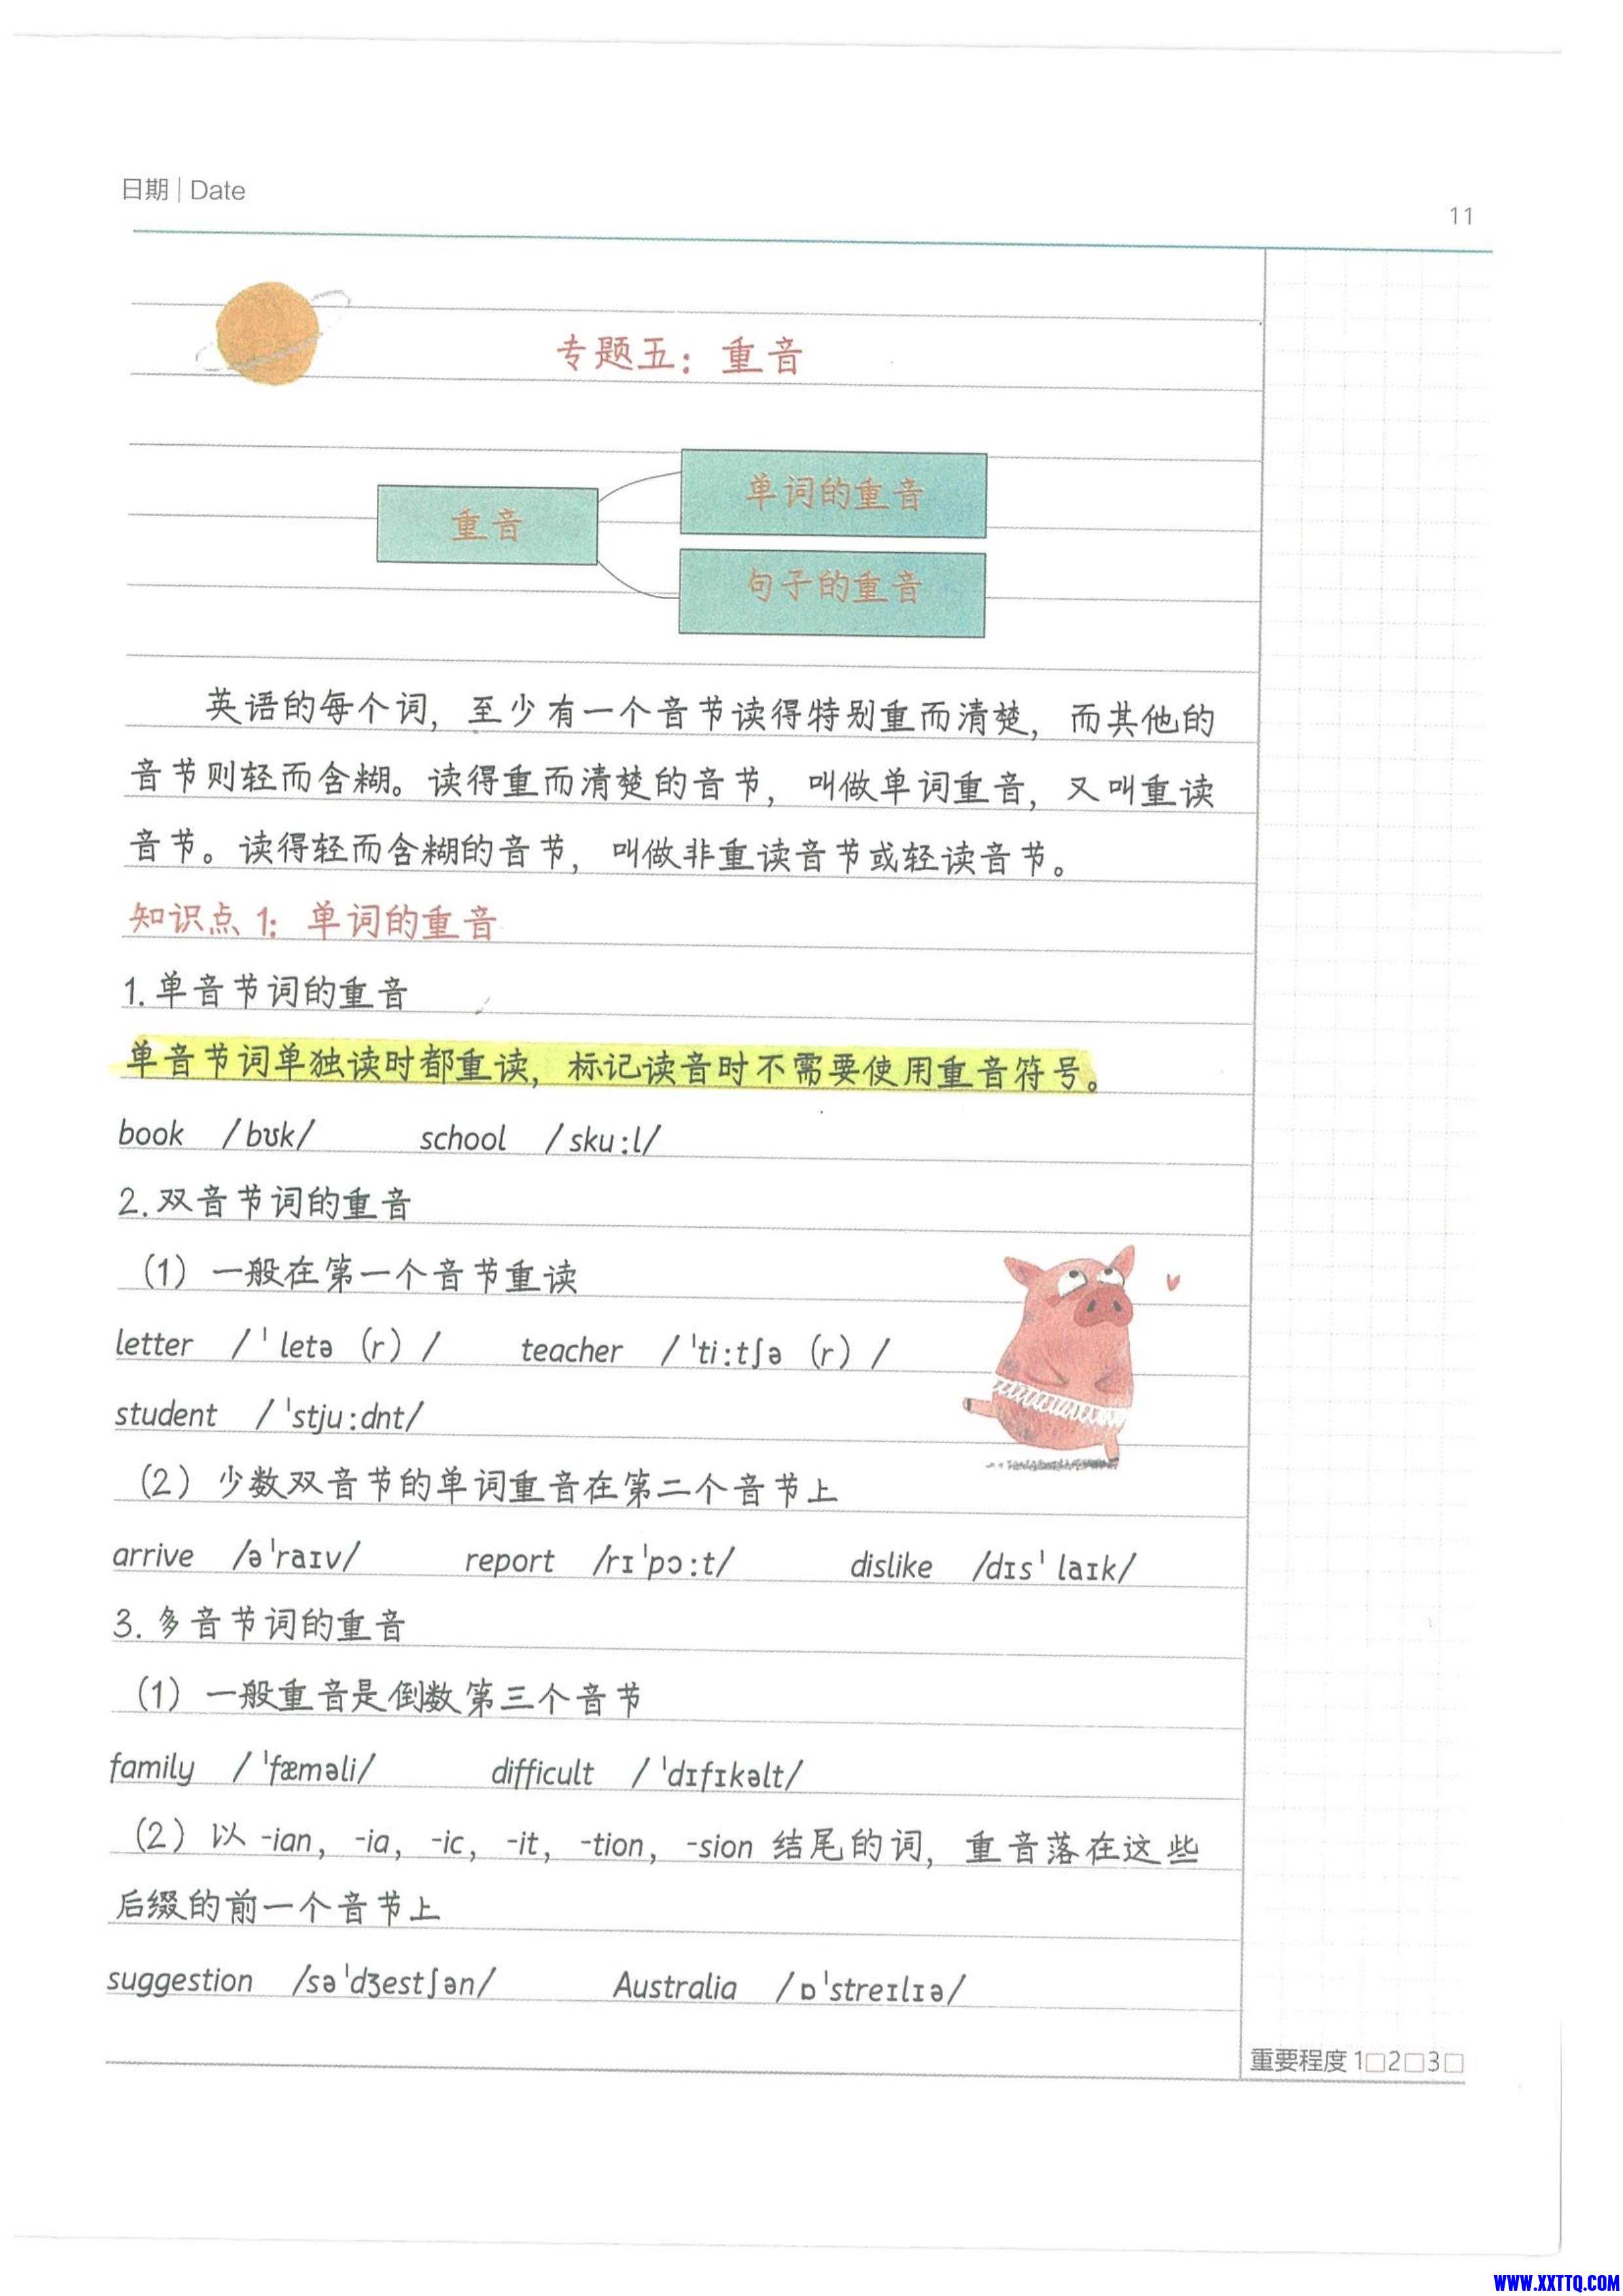 日期 | Date
11
专题五：重音
重音
单词的重音
句子的重音
英语的每个词，至少有一个音节读得特别重而清楚，而其他的
音节则轻而含糊。读得重而清楚的音节，叫做单词重音，又叫重读
音节。读得轻而含糊的音节，叫做非重读音节或轻读音节。
知识点 1：单词的重音
1. 单音节词的重音
单音节词单独读时都重读，标记读音时不需要使用重音符号。
book /bʊk/ school /skuːl/
2. 双音节词的重音
（1）一般在第一个音节重读
letter /ˈletə（r）/ teacher /ˈtiːtʃə（r）/
student /ˈstjuːdnt/
（2）少数双音节的单词重音在第二个音节上
arrive /əˈraɪv/ report /rɪˈpɔːt/ dislike /dɪsˈlaɪk/
3. 多音节词的重音
（1）一般重音是倒数第三个音节
family /ˈfæməli/ difficult /ˈdɪfɪkəlt/
（2）以 -ian，-ia，-ic，-it，-tion，-sion 结尾的词，重音落在这些
后缀的前一个音节上
suggestion /səˈdʒestʃən/ Australia /ɒˈstreɪlɪə/
重要程度 1□2□3□
WWW.XXTTQ.COM